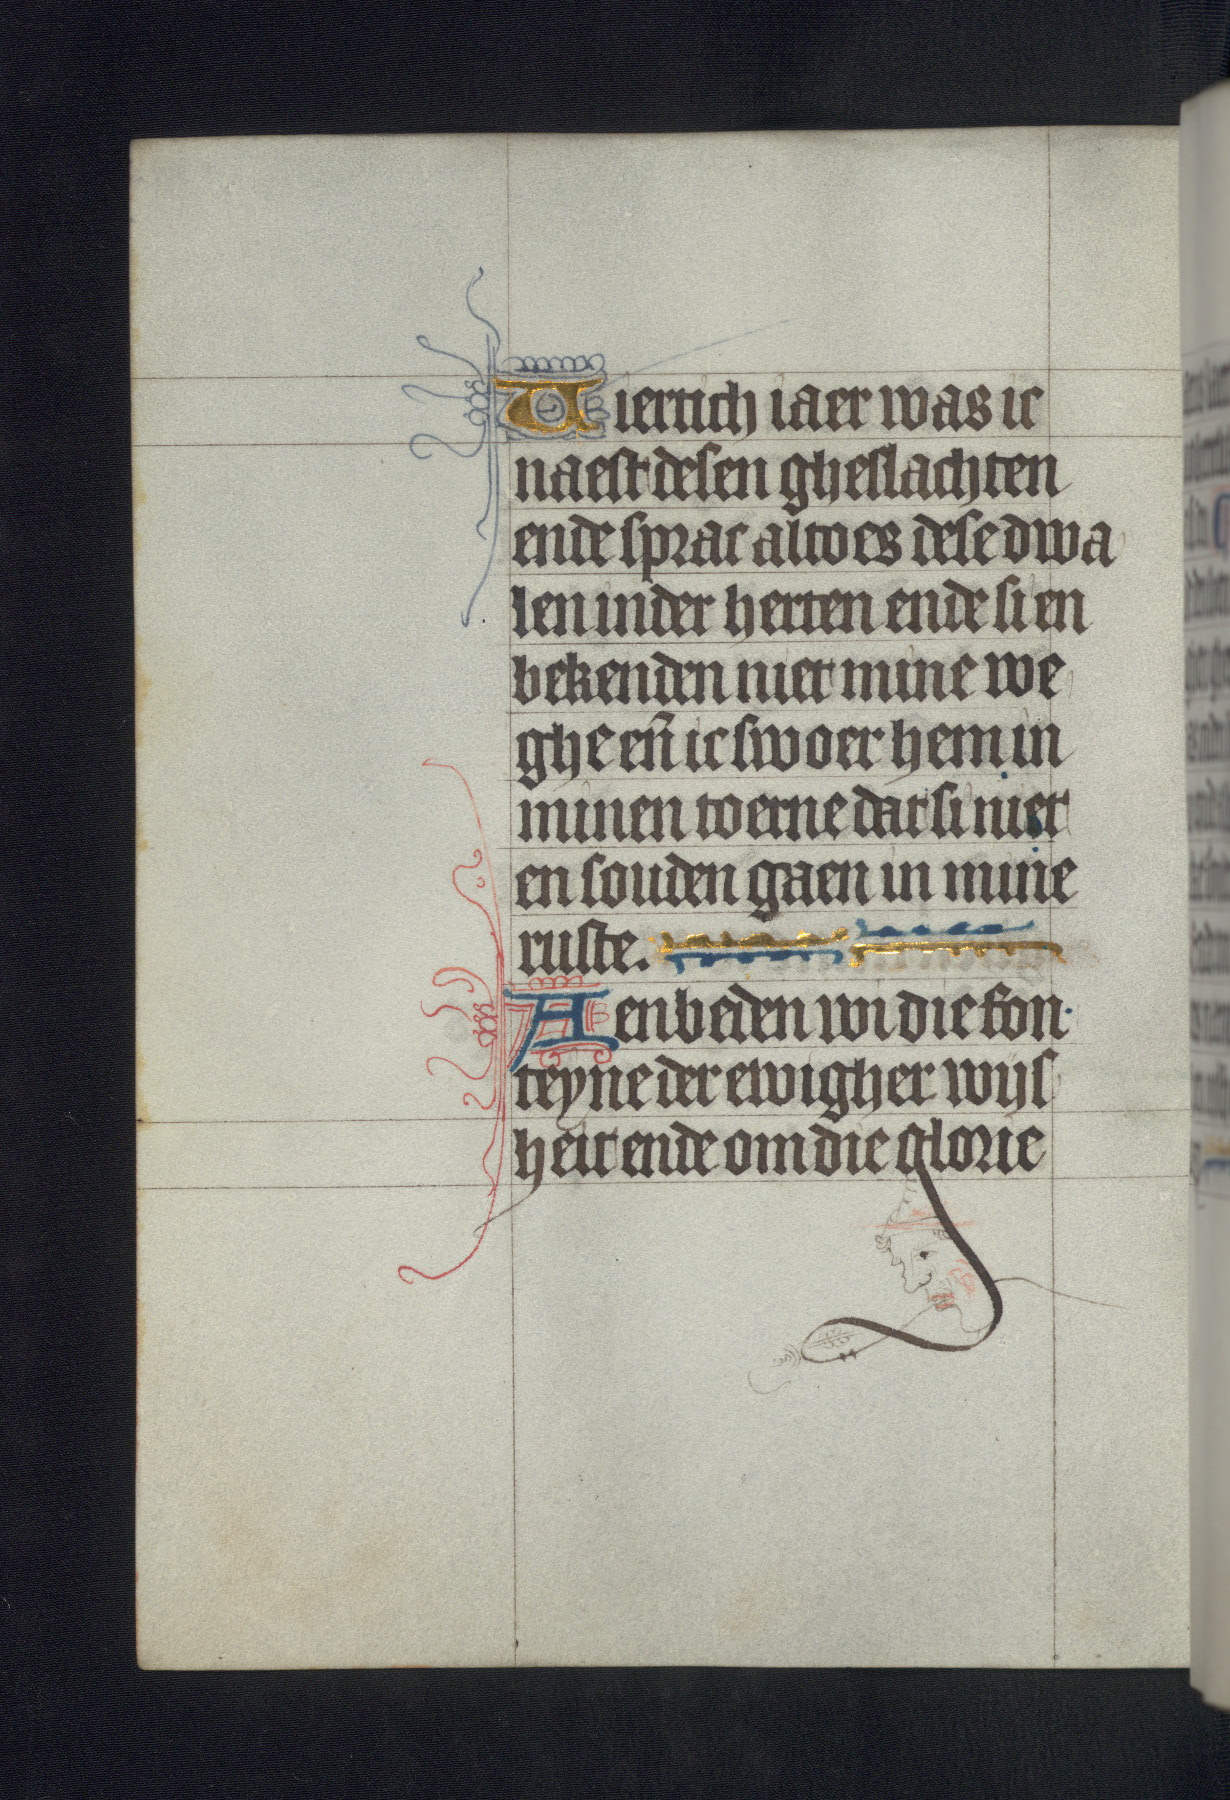 Viertich iaer was ic
naest desen gheslachten
ende sprac altoes dese dwa
len in der herten ende si en
bekenden niet mine we
ghe en̄ ic swoer hem in
minen toerne dat si niet
en souden gaen in mine
ruste.
Aenbeden wi die fon
teyne der ewigher wijs
heit ende om die glorie